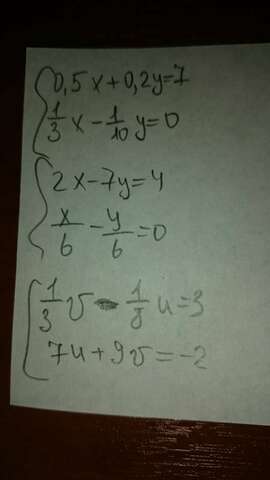 0,5x+0,2y=7
1/3 x - 1/10 y=0
2x-7y=4
x/6 - y/6 =0
1/3 v - 1/8 u=3
7u+9v=-2